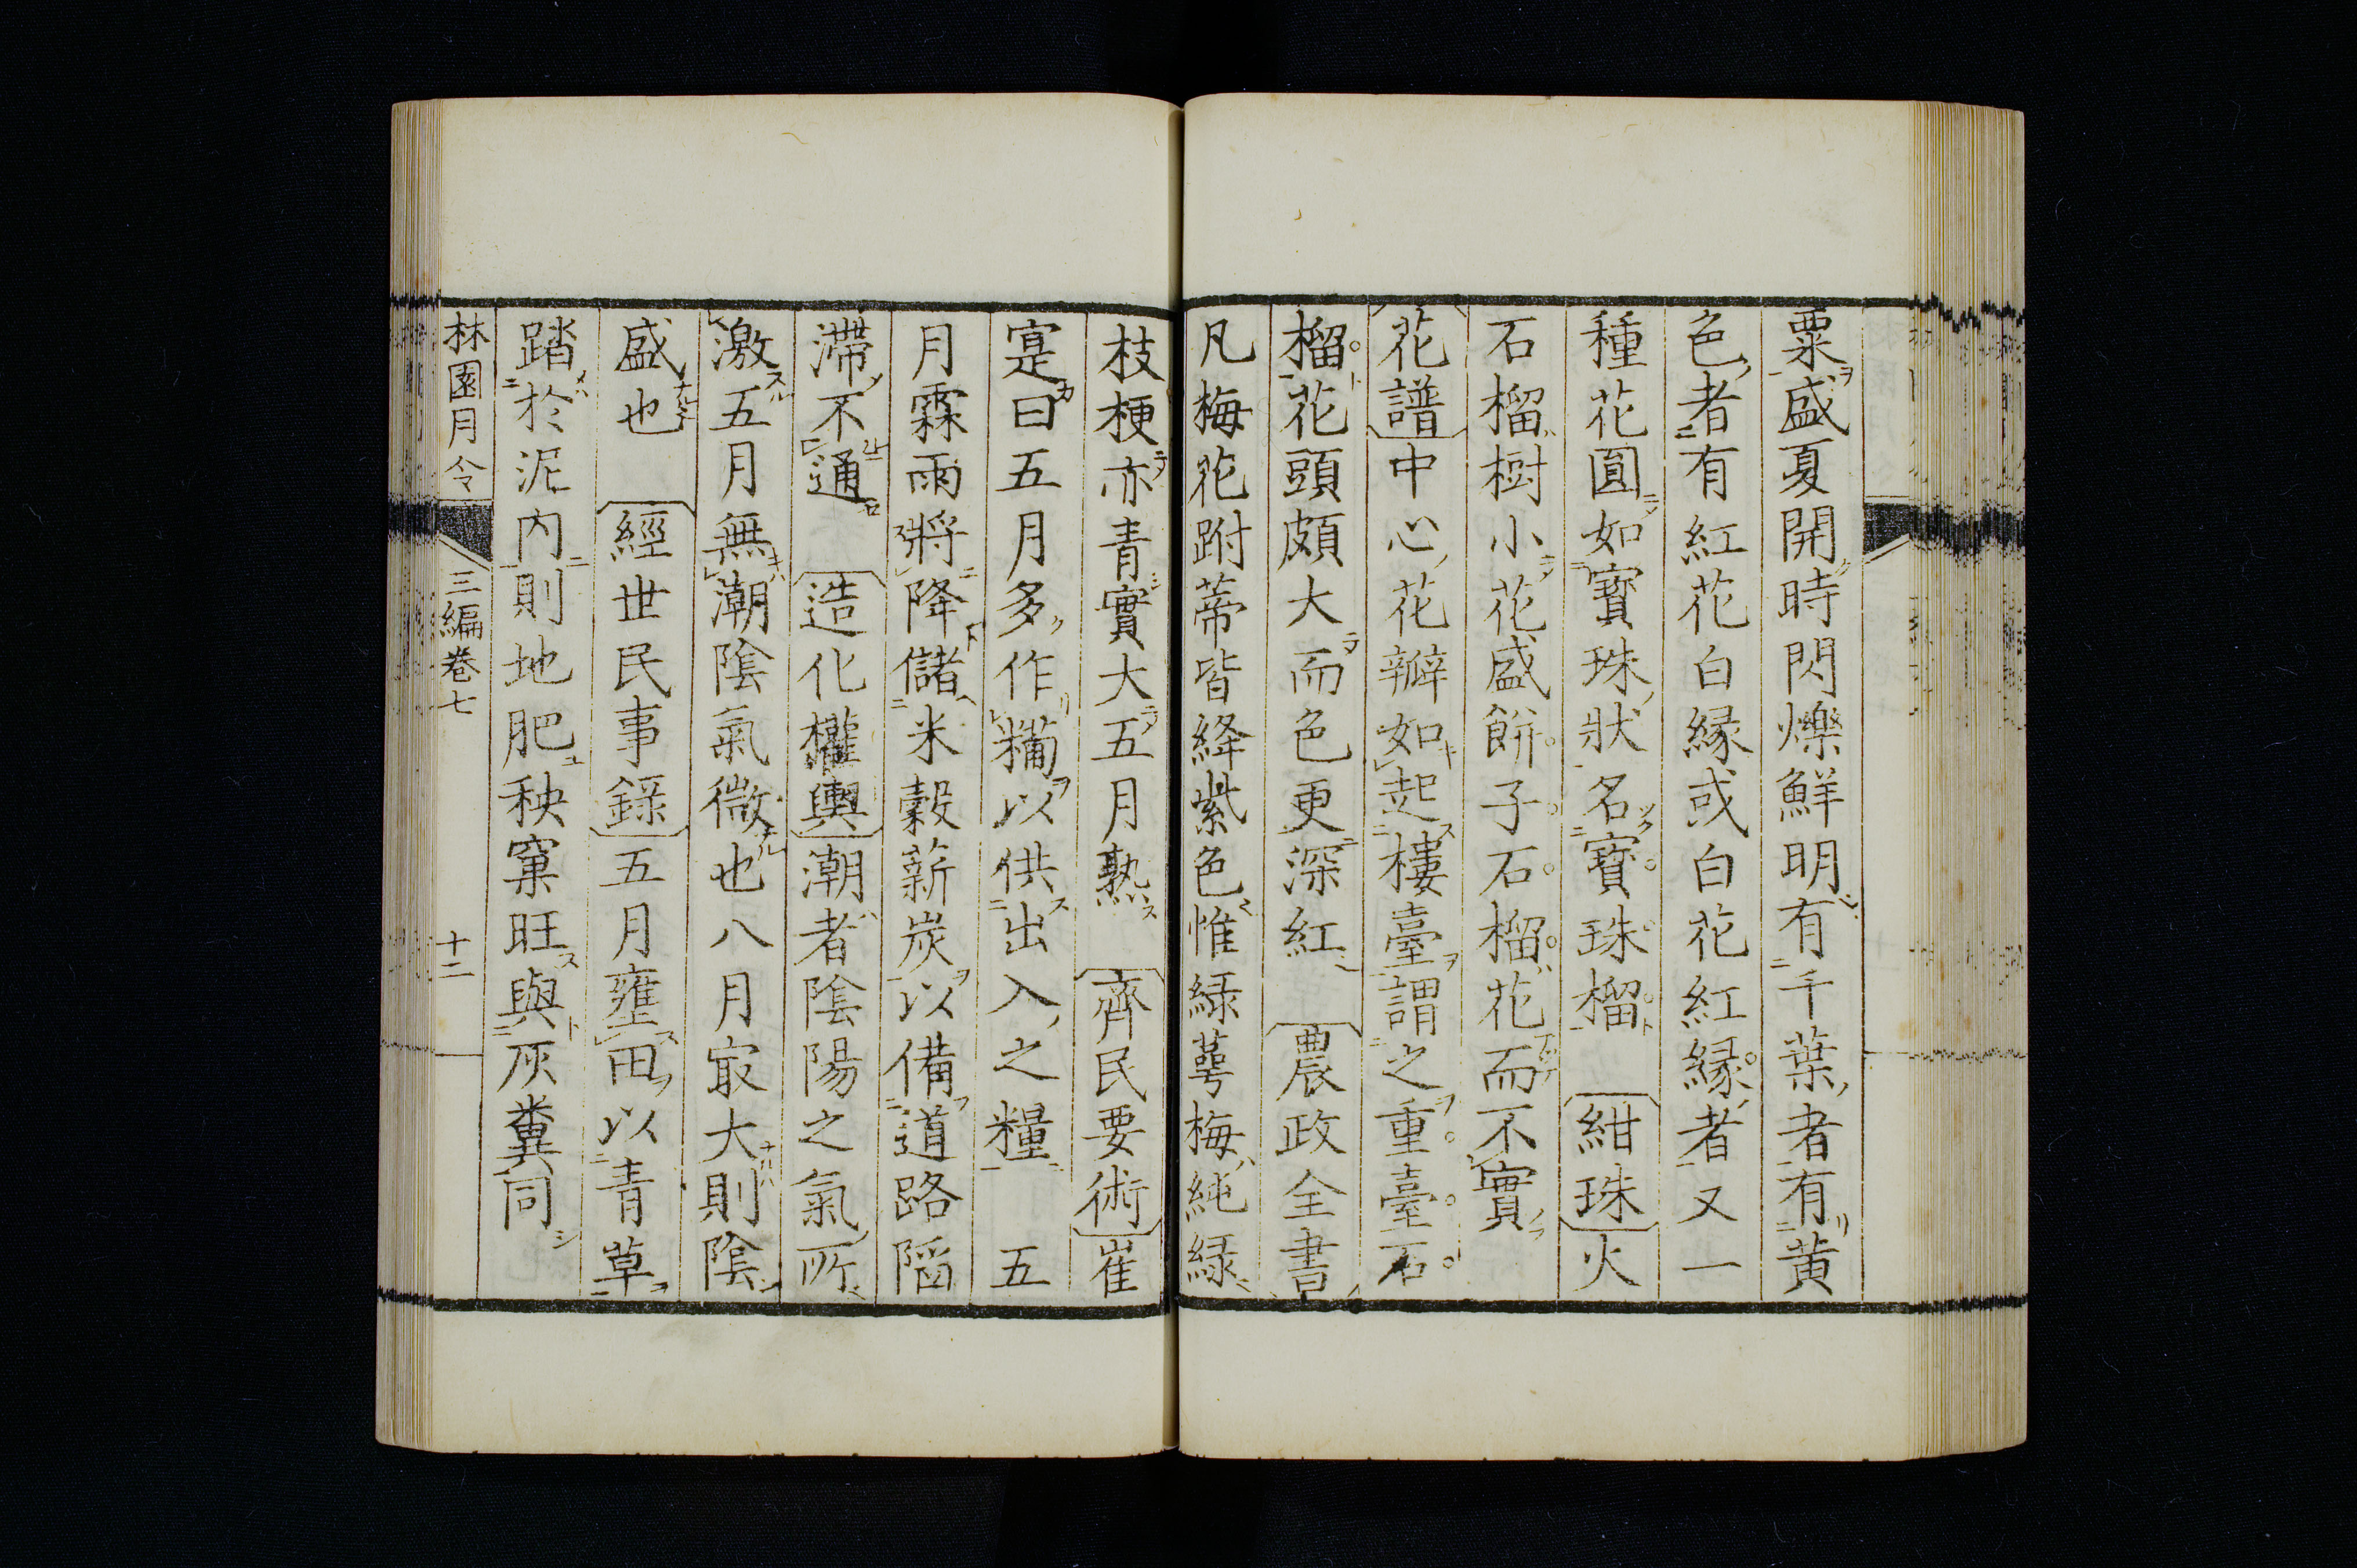 粟盛夏開時閃爍鮮明有千葉者有黃
色者有紅花白縁或白花紅縁者又一
種花圓如寳珠狀名寳珠榴　紺珠火
石榴樹小花盛餅子石榴花而不實
花譜中心花瓣如起樓臺謂之重臺石
榴花頭頗大而色更深紅　農政全書
凡梅花跗蒂皆絳紫色惟緑萼梅純緑
枝梗亦青實大五月熟　齊民要術崔
寔曰五月多作糒以供出入之糧　五
月霖雨將降儲米穀薪炭以備道路陷
滯不通　造化權輿潮者陰陽之氣所
激五月無潮陰氣微也八月㝡大則陰
盛也　經世民事錄五月壅田以青草
踏於泥内則地肥秧窠旺與灰糞同
林園月令　三編卷七　十二